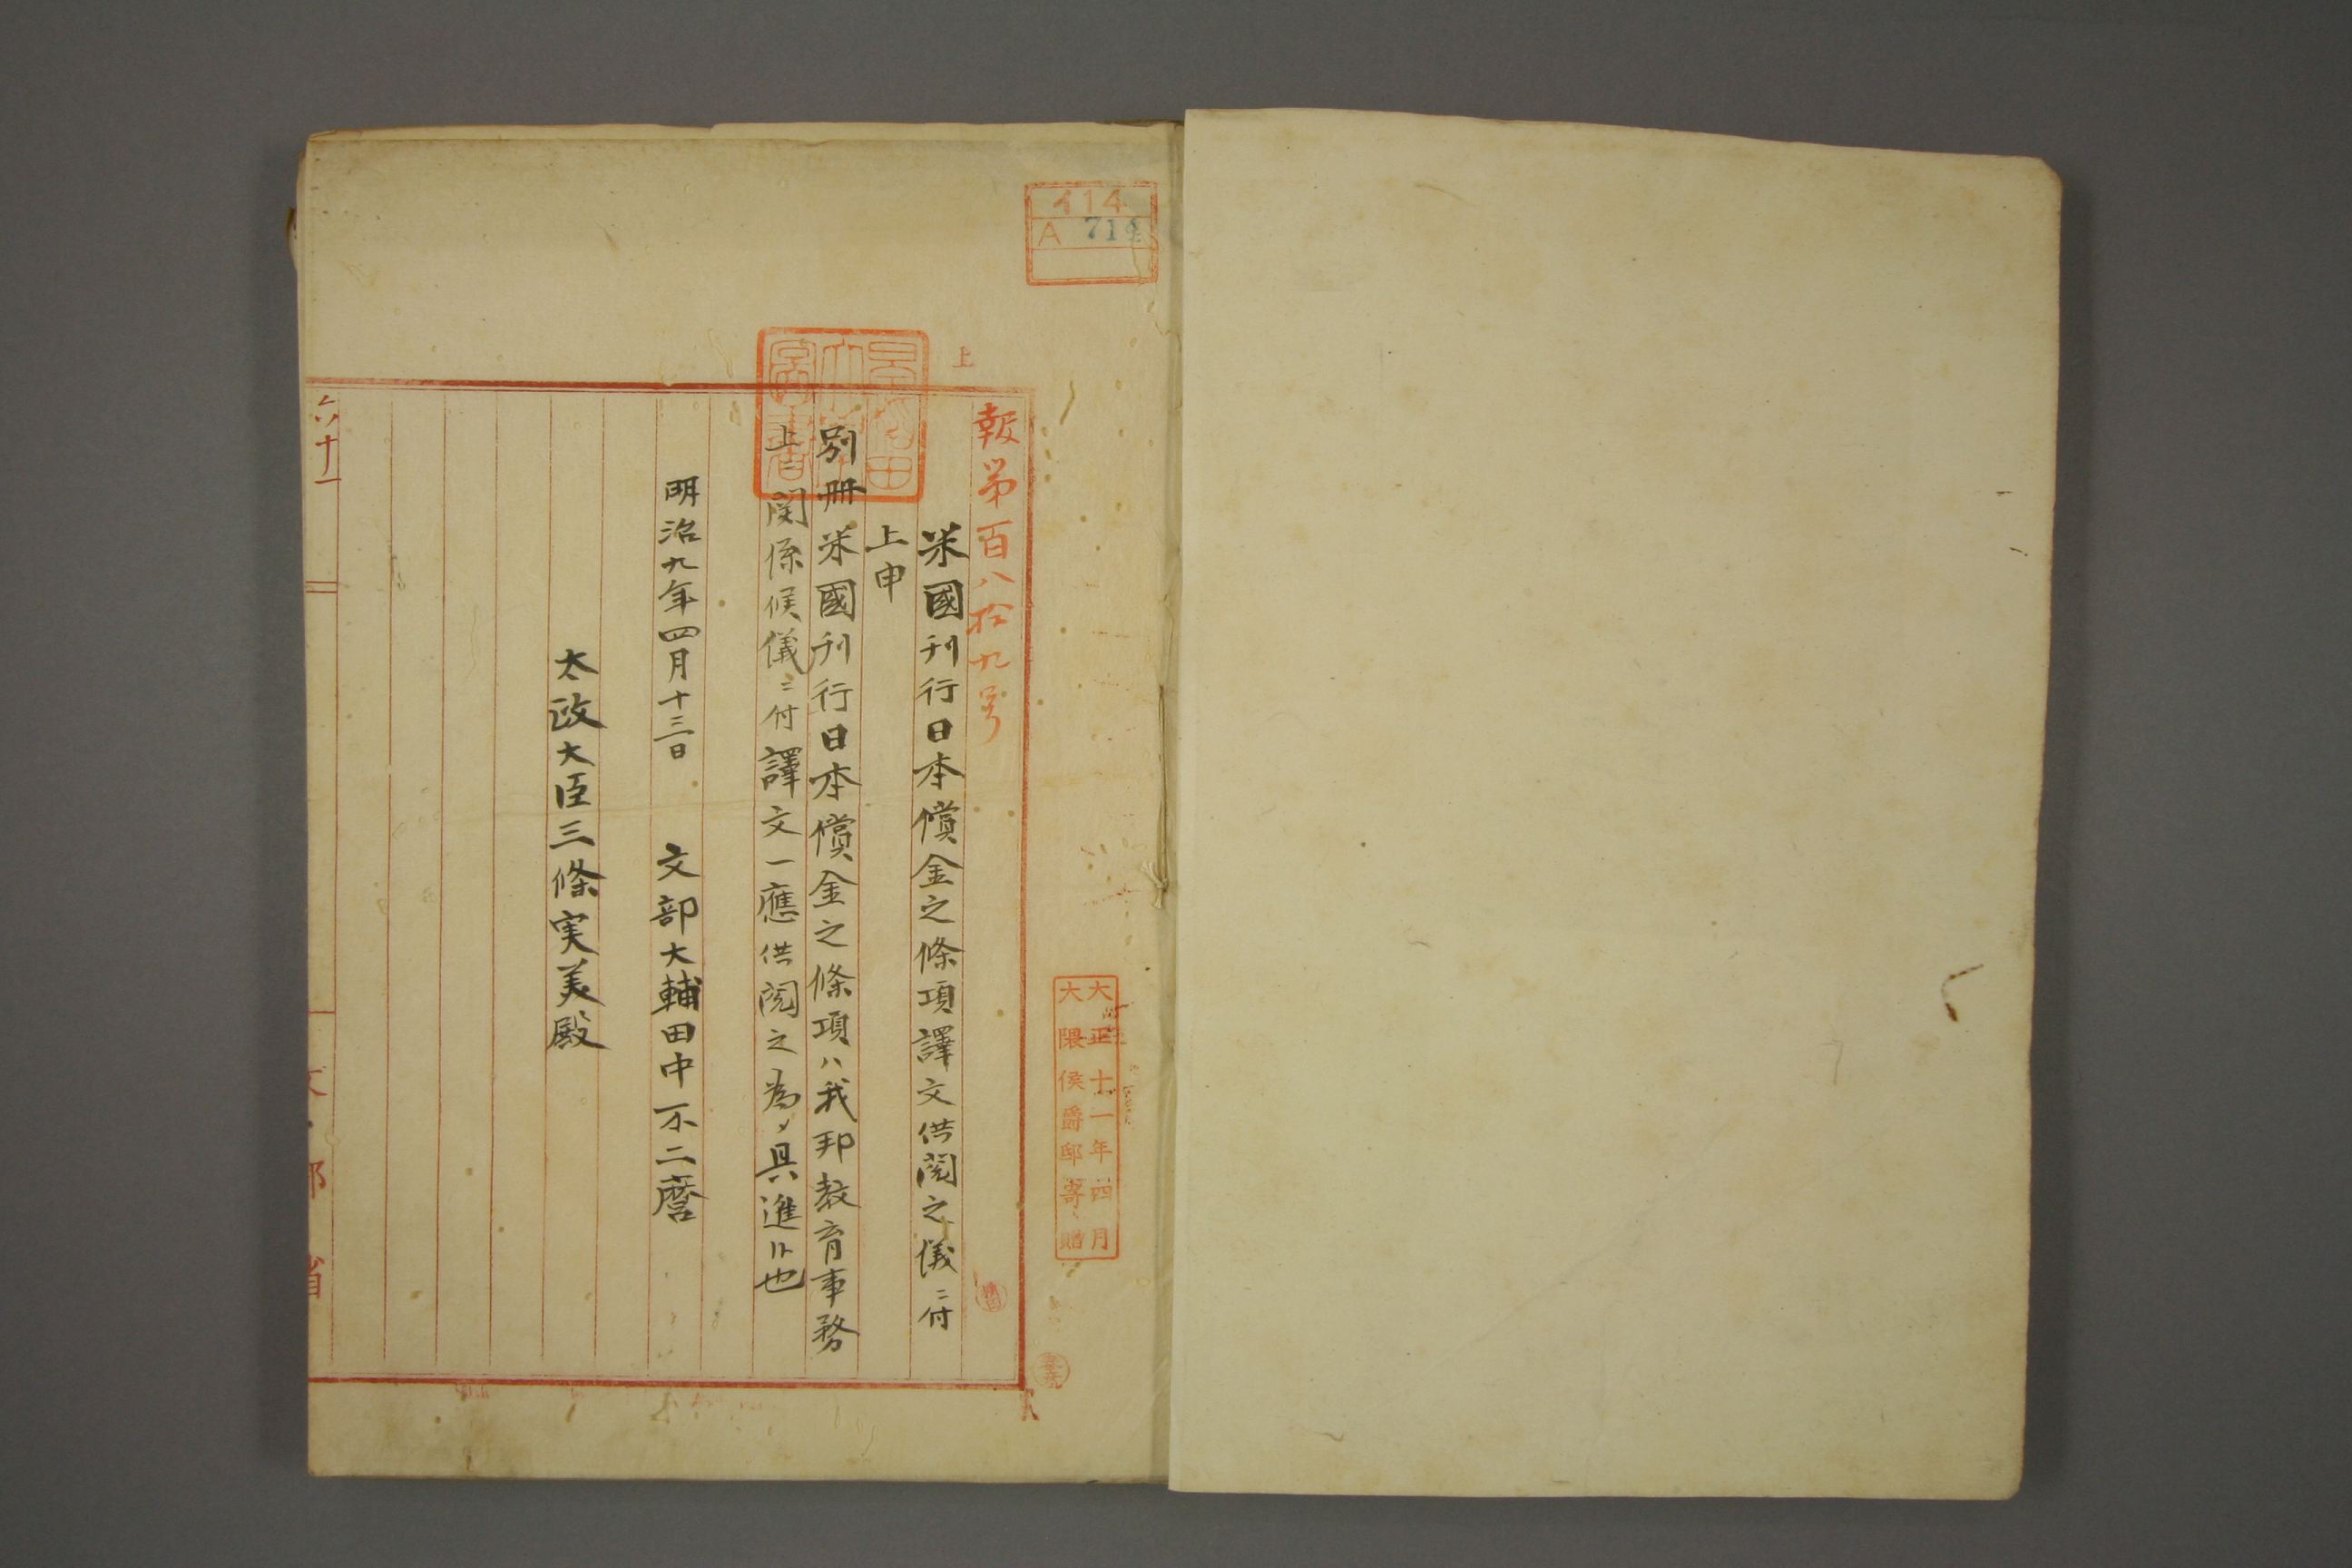 イ14
A 714
上
報第百八拾九号
米國刊行日本償金之條項譯文供閲之儀ニ付
上申
別冊米國刊行日本償金之條項ハ我邦教育事務
上関係候儀ニ付譯文一應供閲之為メ具進候也
明治九年四月十三日 文部大輔田中不二麿
太政大臣三條実美殿
六十一
文部省
大正十一年四月
大隈侯爵邸寄贈
早稲田
大學
圖書